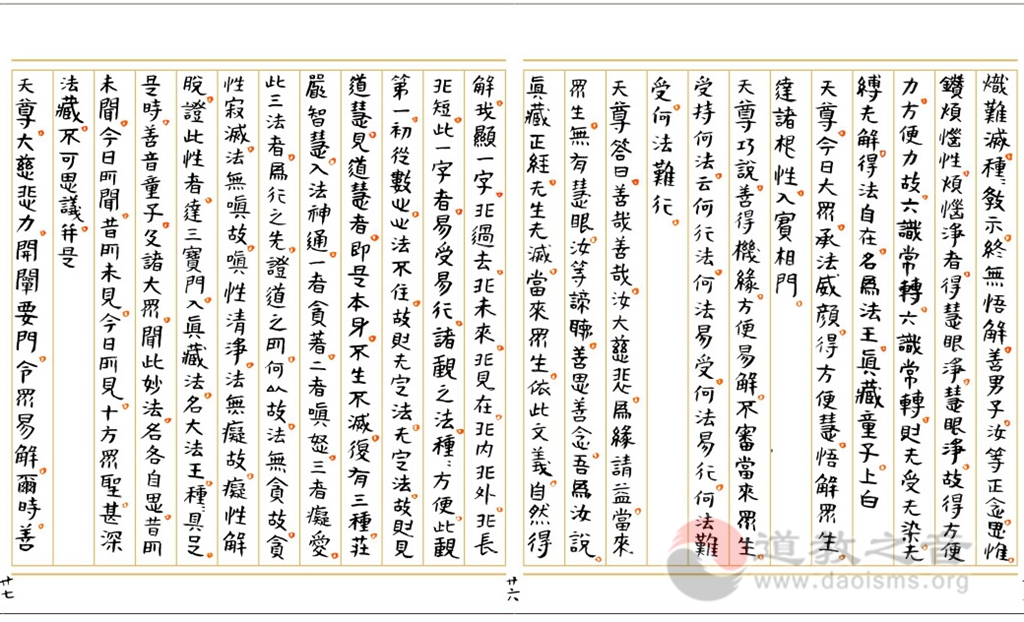 熾難滅種〻敎示終無悟解善男子汝等正念思惟
鑽煩惱性煩惱淨者得慧眼淨慧眼淨故得方便
力方便力故六識常轉六識常轉則无受无染无
縛无解得法自在名爲法王眞藏童子上白
天尊今日大眾承法威顔得方便慧悟解眾生
達諸根性入寶相門
天尊巧說善得機緣方便易解不審當來眾生
受持何法云何行法何法易受何法易行何法難
受何法難行
天尊答曰善哉善哉汝大慈悲爲緣請益當來
眾生無有慧眼汝等諦聽善思善念吾爲汝說
眞藏正經无生无滅當來眾生依此文義自然得
廿六
解我顯一字非過去非未來非見在非內非外非長
非短此一字者易受易行諸觀之法種〻方便此觀
第一初從數心心法不住故則无定法无定法故則見
道慧見道慧者即是本身不生不滅復有三種莊
嚴智慧入法神通一者貪著二者嗔怒三者癡愛
此三法者爲行之先證道之而何以故法無貪故貪
性寂滅法無嗔故嗔性清淨法無癡故癡性解
脫證此性者達三寶門入眞藏法名大法王種〻具足
是時善音童子及諸大眾聞此妙法各各自思昔所
未聞今日所聞昔所未見今日所見十方眾聖甚深
法藏不可思議於是
天尊大慈悲力開闡要門令眾易解爾時善
廿七
道教之音
www.daoisms.org